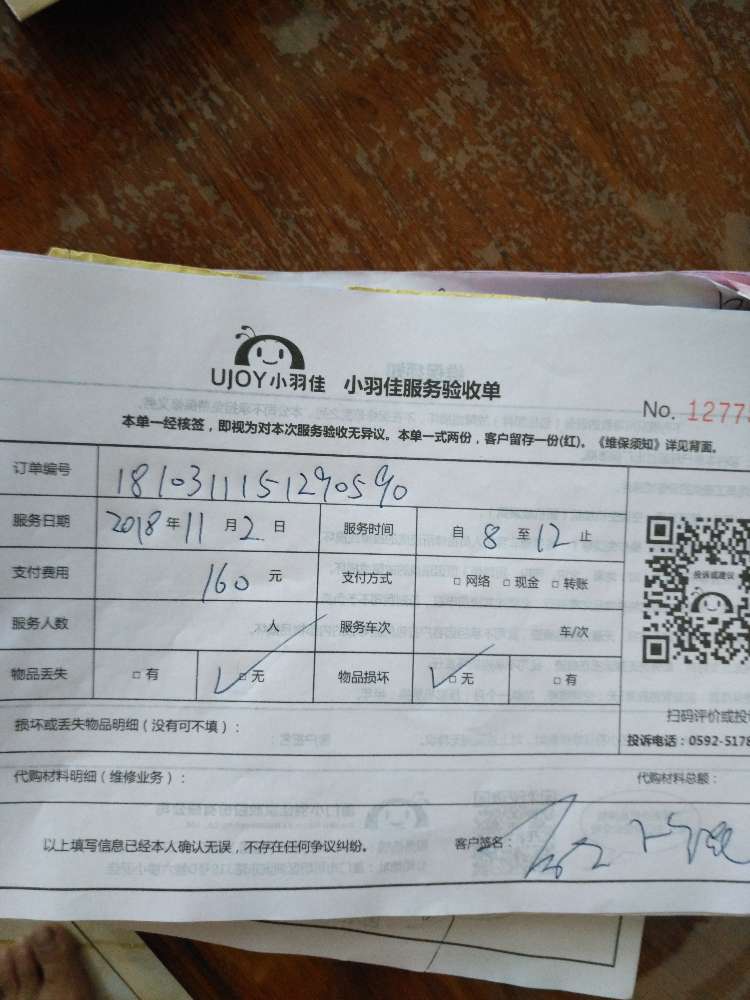 UJOY小羽佳 小羽佳服务验收单
No. 1277
本单一经核签，即视为对本次服务验收无异议。本单一式两份，客户留存一份(红)。《维保须知》详见背面。
订单编号 1810311151290590
服务日期 2018年11月2日 服务时间 自8至12止
支付费用 160元 支付方式 □网络 □现金 □转账
投诉或建议
服务人数 人 服务车次 车/次
物品丢失 □有 □无 物品损坏 □无 □有
扫码评价或投
损坏或丢失物品明细（没有可不填）：
投诉电话：0592-5178
代购材料明细（维修业务）： 代购材料总额：
以上填写信息已经本人确认无误，不存在任何争议纠纷。 客户签名：